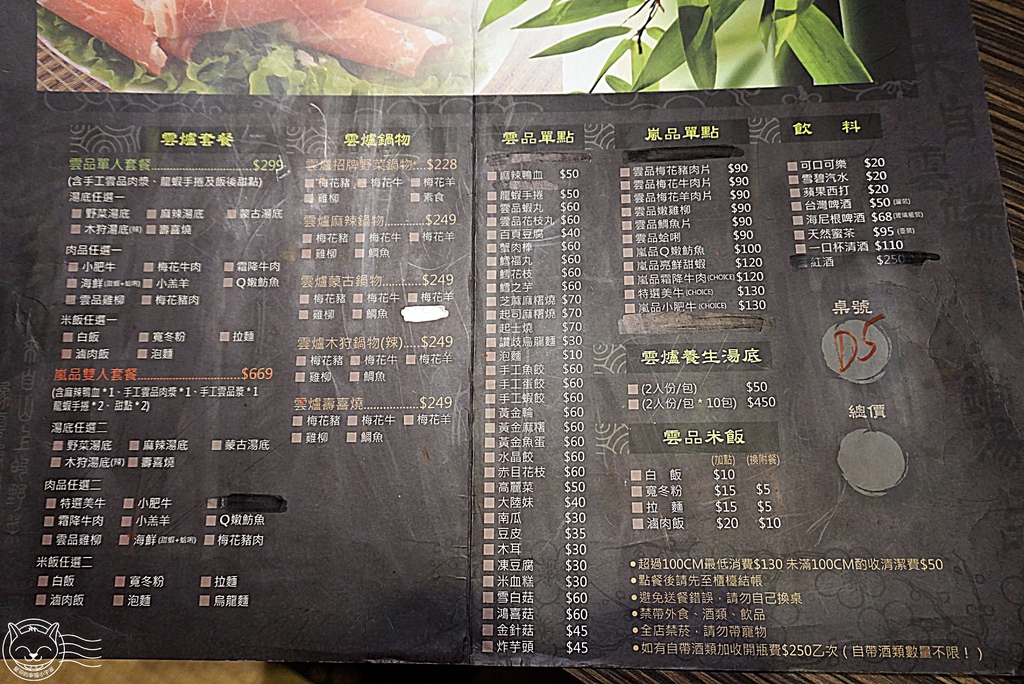 雲爐套餐
雲品單人套餐 $299
(含手工雲品肉漿、龍蝦手捲及飯後甜點)
湯底任選一
野菜湯底 麻辣湯底 蒙古湯底
木狩湯底(辣) 壽喜燒
肉品任選一
小肥牛 梅花牛肉 霜降牛肉
海鮮(甜蝦+蛤蜊) 小羔羊 Q嫩魴魚
雲品雞柳 梅花豬肉
米飯任選一
白飯 寬冬粉 拉麵
滷肉飯 泡麵
嵐品雙人套餐 $669
(含麻辣鴨血*1、手工雲品肉漿*1、手工雲品漿*1
龍蝦手捲*2、甜點*2)
湯底任選二
野菜湯底 麻辣湯底 蒙古湯底
木狩湯底(辣) 壽喜燒
肉品任選二
特選美牛 小肥牛
霜降牛肉 小羔羊 Q嫩魴魚
雲品雞柳 海鮮(甜蝦+蛤蜊) 梅花豬肉
米飯任選二
白飯 寬冬粉 拉麵
滷肉飯 泡麵 烏龍麵
雲爐鍋物
雲爐招牌野菜鍋物 $228
梅花豬 梅花牛 梅花羊
雞柳 素食
雲爐麻辣鍋物 $249
梅花豬 梅花牛 梅花羊
雞柳 鯛魚
雲爐蒙古鍋物 $249
梅花豬 梅花牛 梅花羊
雞柳 鯛魚
雲爐木狩鍋物(辣) $249
梅花豬 梅花牛 梅花羊
雞柳 鯛魚
雲爐壽喜燒 $249
梅花豬 梅花牛 梅花羊
雞柳 鯛魚
雲品單點
麻辣鴨血 $50
龍蝦手捲 $50
雲品蝦丸 $60
雲品花枝丸 $60
百頁豆腐 $40
蟹肉棒 $60
鱈福丸 $60
鱈花枝 $60
鱈之芋 $60
芝麻麻糬燒 $70
起司麻糬燒 $70
起士燒 $70
讚歧烏龍麵 $30
泡麵 $10
手工魚餃 $60
手工蛋餃 $60
手工蝦餃 $60
黃金輪 $60
黃金麻糬 $60
黃金魚蛋 $60
水晶餃 $60
赤目花枝 $60
高麗菜 $50
大陸妹 $40
南瓜 $30
豆皮 $35
木耳 $30
凍豆腐 $30
米血糕 $30
雪白菇 $60
鴻喜菇 $60
金針菇 $45
炸芋頭 $45
嵐品單點
雲品梅花豬肉片 $90
雲品梅花牛肉片 $90
雲品梅花羊肉片 $90
雲品嫩雞柳 $90
雲品鯛魚片 $90
雲品蛤蜊 $90
嵐品Q嫩魴魚 $100
嵐品亮鮮甜蝦 $120
嵐品霜降牛肉(CHOICE) $120
特選美牛(CHOICE) $130
嵐品小肥牛(CHOICE) $130
雲爐養生湯底
(2人份/包) $50
(2人份/包*10包) $450
雲品米飯
(加點) (換附餐)
白 飯 $10
寬冬粉 $15 $5
拉 麵 $15 $5
滷肉飯 $20 $10
飲 料
可口可樂 $20
雪碧汽水 $20
蘋果西打 $20
台灣啤酒 $50(罐裝)
海尼根啤酒 $68(玻璃瓶裝)
天然蜜茶 $95(壺裝)
一口杯清酒 $110
紅酒 $250
桌號
D5
總價
●超過100CM最低消費$130 未滿100CM酌收清潔費$50
●點餐後請先至櫃檯結帳
●避免送餐錯誤，請勿自己換桌
●禁帶外食、酒類、飲品
●全店禁菸，請勿帶寵物
●如有自帶酒類加收開瓶費$250乙次（自帶酒類數量不限！）